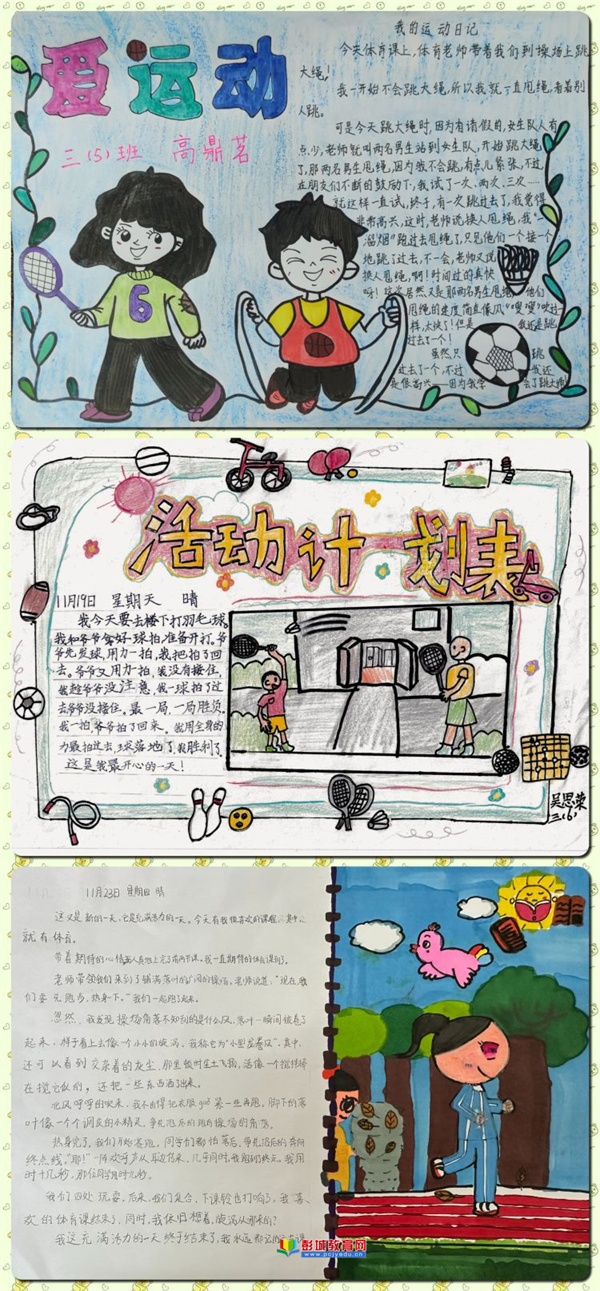 我的运动日记
爱运动
三(5)班 高鼎茗
今天体育课上,体育老师带着我们到操场上跳
大绳!
我一开始不会跳大绳,所以我就一直甩绳,看着别
人跳。
可是今天跳大绳时,因为有请假的,女生队人有
点少,老师就叫两名男生站到女生队,开始跳大绳
了,那两名男生甩绳,因为我不会跳,有点儿紧张,不过
在朋友们不断的鼓励下,我试了一次、两次、三次……
就这样一直试,终于,有一次跳过去了,我觉得
非常高兴,这时,老师说换人甩绳,我"一
溜烟"跑过去甩绳了,只见他们一个接一个
地跳了过去,不一会,老师又说
换人甩绳,啊!时间过的真快
呀!居然又是那两名男生甩绳,他们
甩绳的速度简直像
样,太快了!但是我还是跳
过去了一个!
虽然只跳
过去了一个,不过我还
是很高兴——因为我学会了跳大绳!
活动计划表
11月19日 星期天 晴
我今天要去楼下打羽毛球。
我和爷爷拿好球拍,准备开打。爷
爷先发球,用力一拍,我把拍了回
去。爷爷又用力一拍,我没有接住,
我趁爷爷没注意,我一球拍了过
去爷爷没接住。最一局,一局胜负,
我一拍,爷爷拍了回来。我用全身的
力最拍过去,球落地了,我胜利了。
这是我最开心的一天!
吴思荣
三(6)
11月23日 星期四 晴
这又是新的一天,它是充满活力的一天。今天有我很喜欢的课程,其中
就有体育。
带着期待的心情
老师带领我们来到了铺满落叶的操场,老师说道:"现在,我
们要先跑步,热身一下。"我们一起跑了起来。
忽然,我发现操场角落不知刮的是什么风,落叶一瞬间被卷了
起来,样子看上去像一个小小的旋涡,我称它为"小型龙卷风"。其中,
还可以看到交杂着的灰尘,那里顿时尘土飞扬,活像一个搅拌棒
在搅它们,还把一些东西洒了出来。
北风呼呼的吹来,脚下的落
叶像一个个调皮的小精灵,争先恐后的跑向操场的角落。
热身完了,我们开始赛跑,同学们都怕落后,争先恐后的奔向
终点线。
我们四处玩耍,后来,我们集合,下课铃也打响了,我喜
欢的体育课结束了,同时,我依旧想着,旋涡从哪来的?
我这充满活力的一天终于结束了,我永远都
彭城教育网
www.pcjyedu.cn